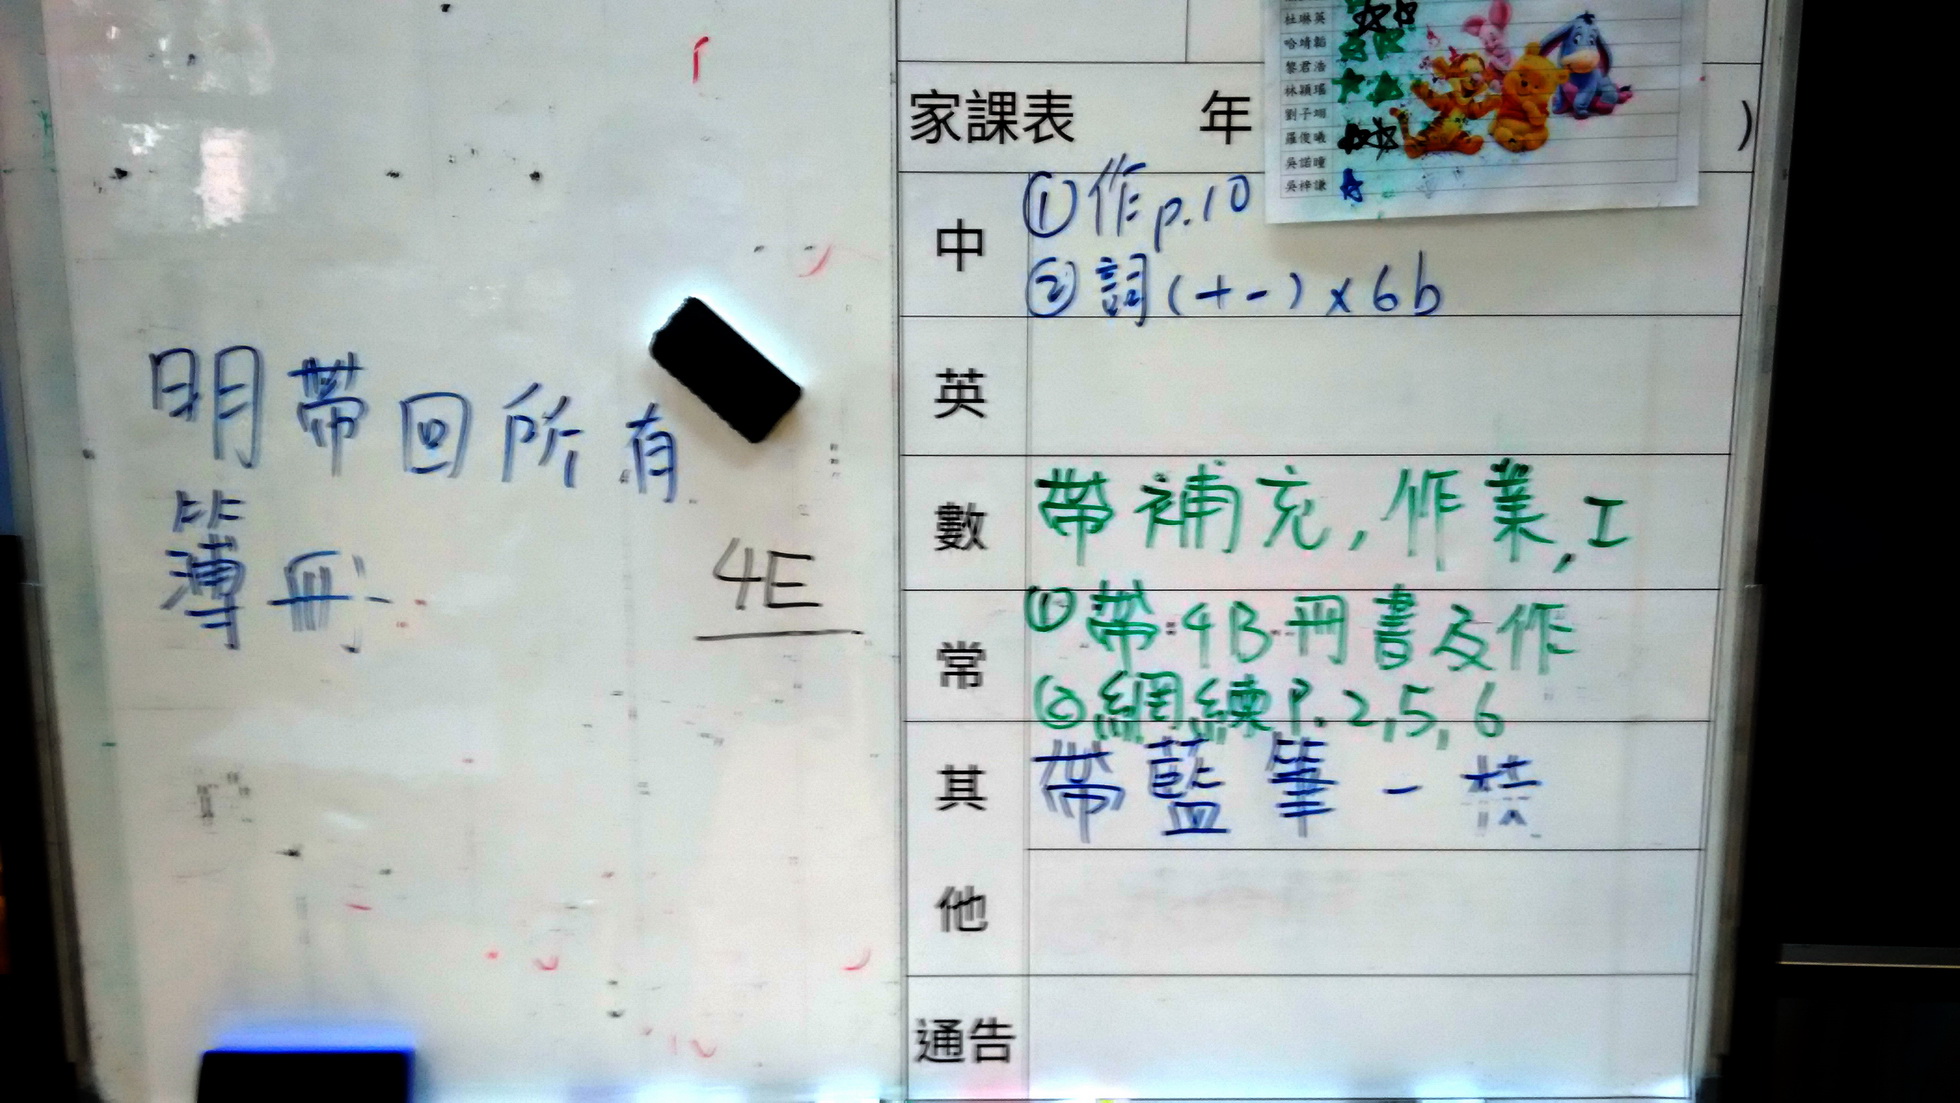 明帶回所有
簿冊
4E
杜琳英
哈靖韜
黎君浩
林穎瑤
劉子翊
羅俊曦
吳諾瞳
吳梓謙
家課表 年 )
中
①作p.10
②詞(+-)×6b
英
數
帶補充,作業,工
常
①帶:4B冊書及作
②網練P.2,5,6
其他
帶藍筆一枝
通告